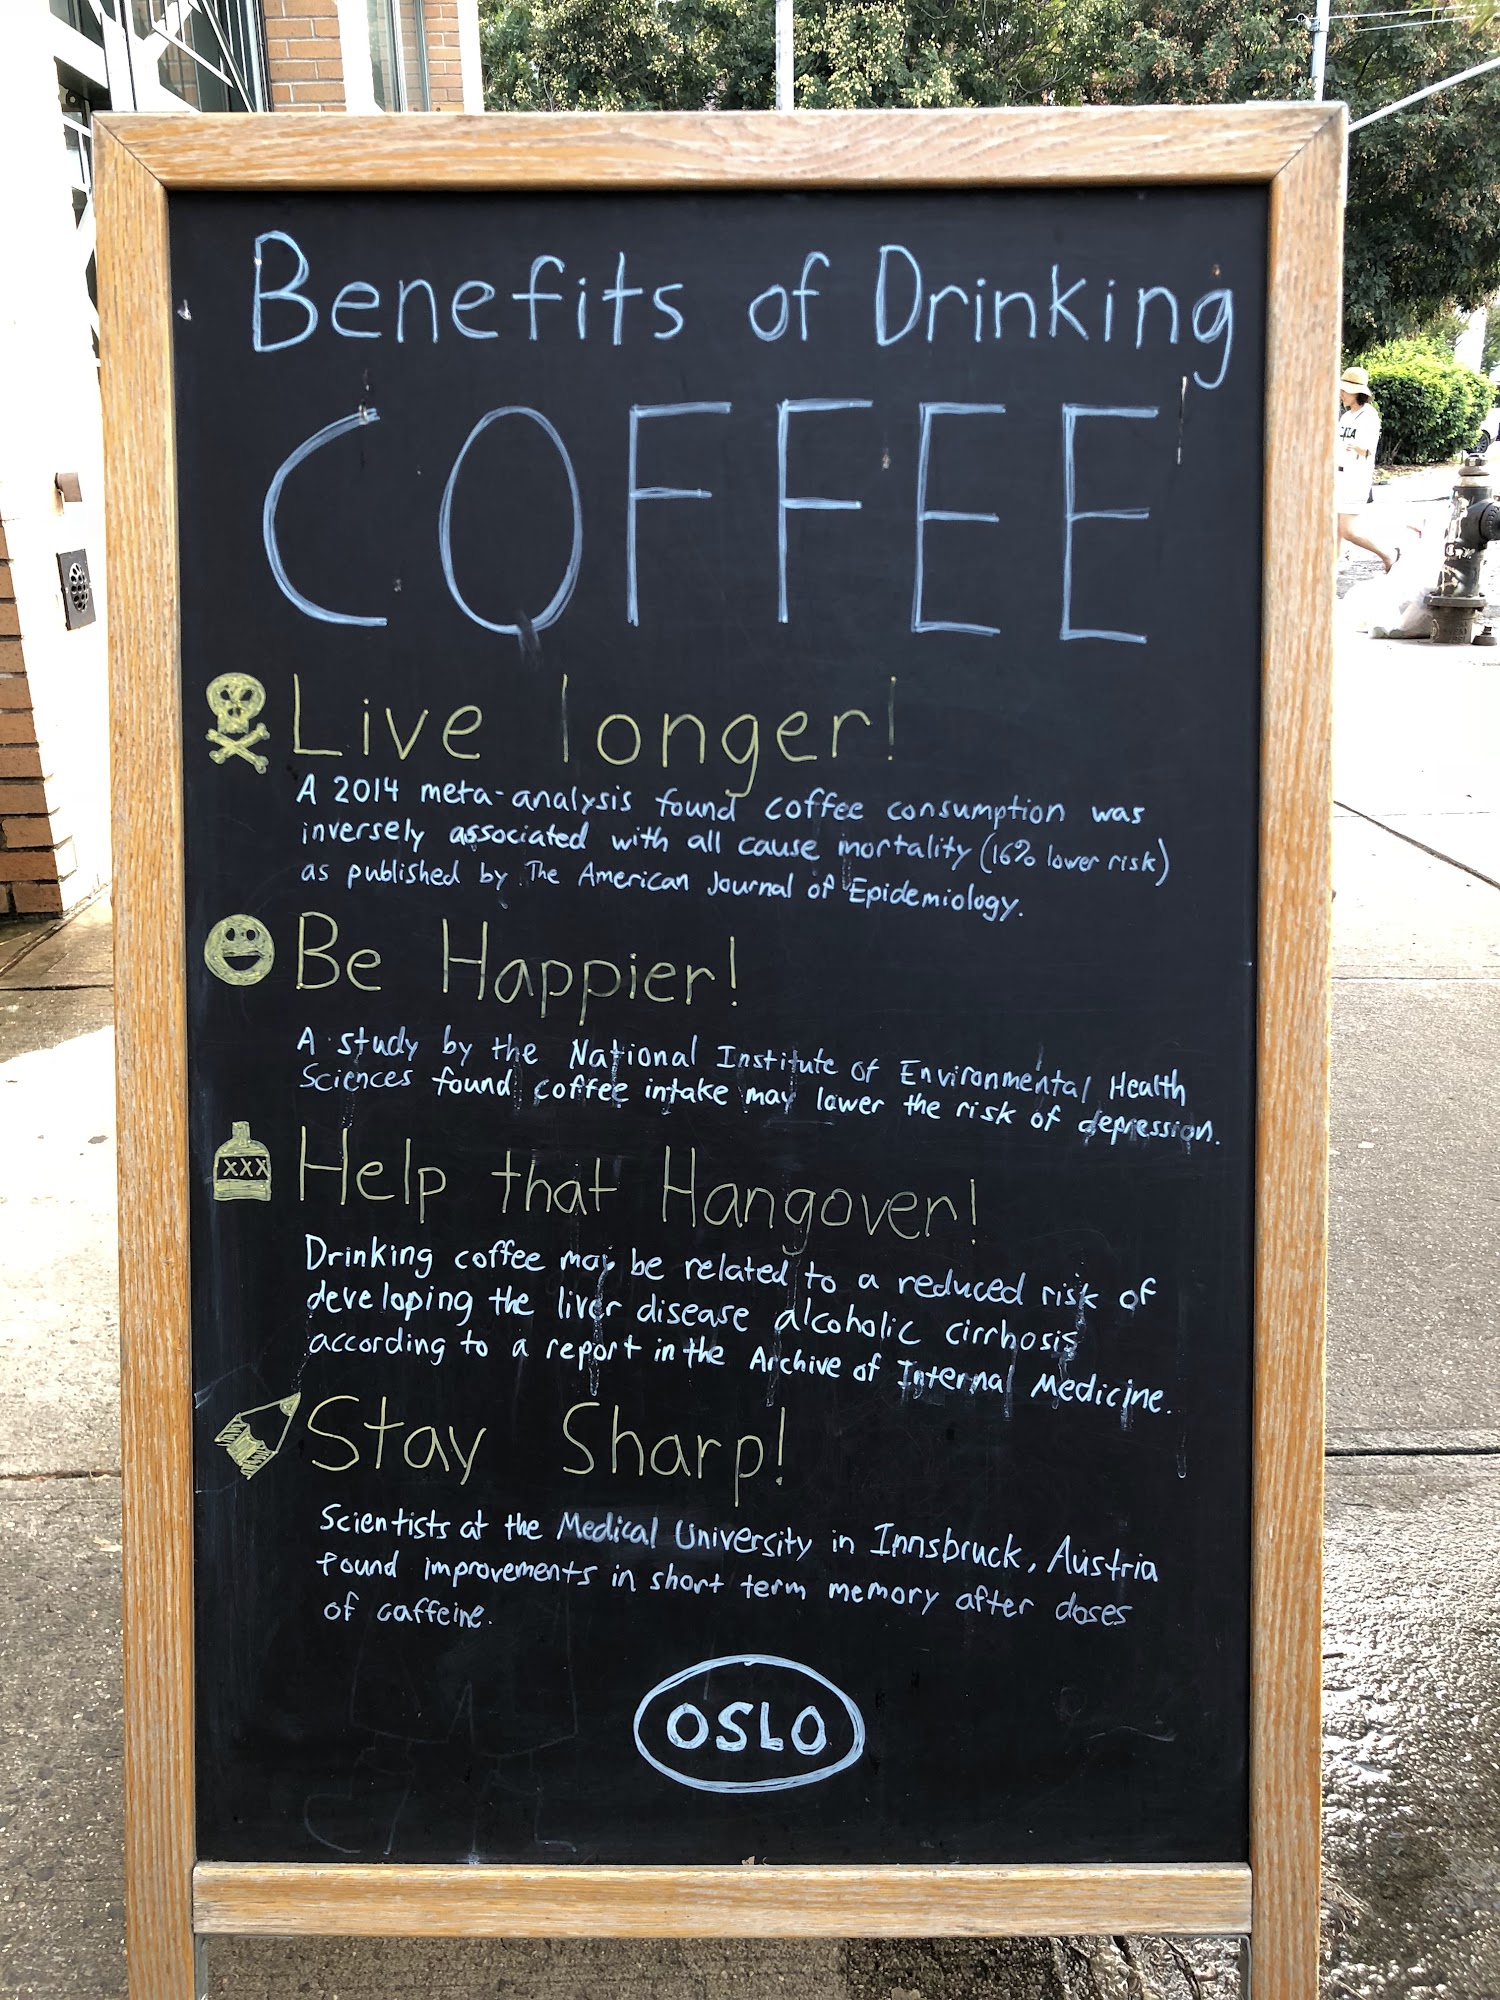 Benefits of Drinking
COFFEE
Live longer!
A 2014 meta-analysis found coffee consumption was
inversely associated with all cause mortality (16% lower risk)
as published by The American Journal of Epidemiology.
Be Happier!
A study by the National Institute of Environmental Health
Sciences found coffee intake may lower the risk of depression.
XXX
Help that Hangover!
Drinking coffee may be related to a reduced risk of
developing the liver disease alcoholic cirrhosis
according to a report in the Archive of Internal Medicine.
Stay Sharp!
Scientists at the Medical University in Innsbruck, Austria
found improvements in short term memory after doses
of caffeine.
OSLO